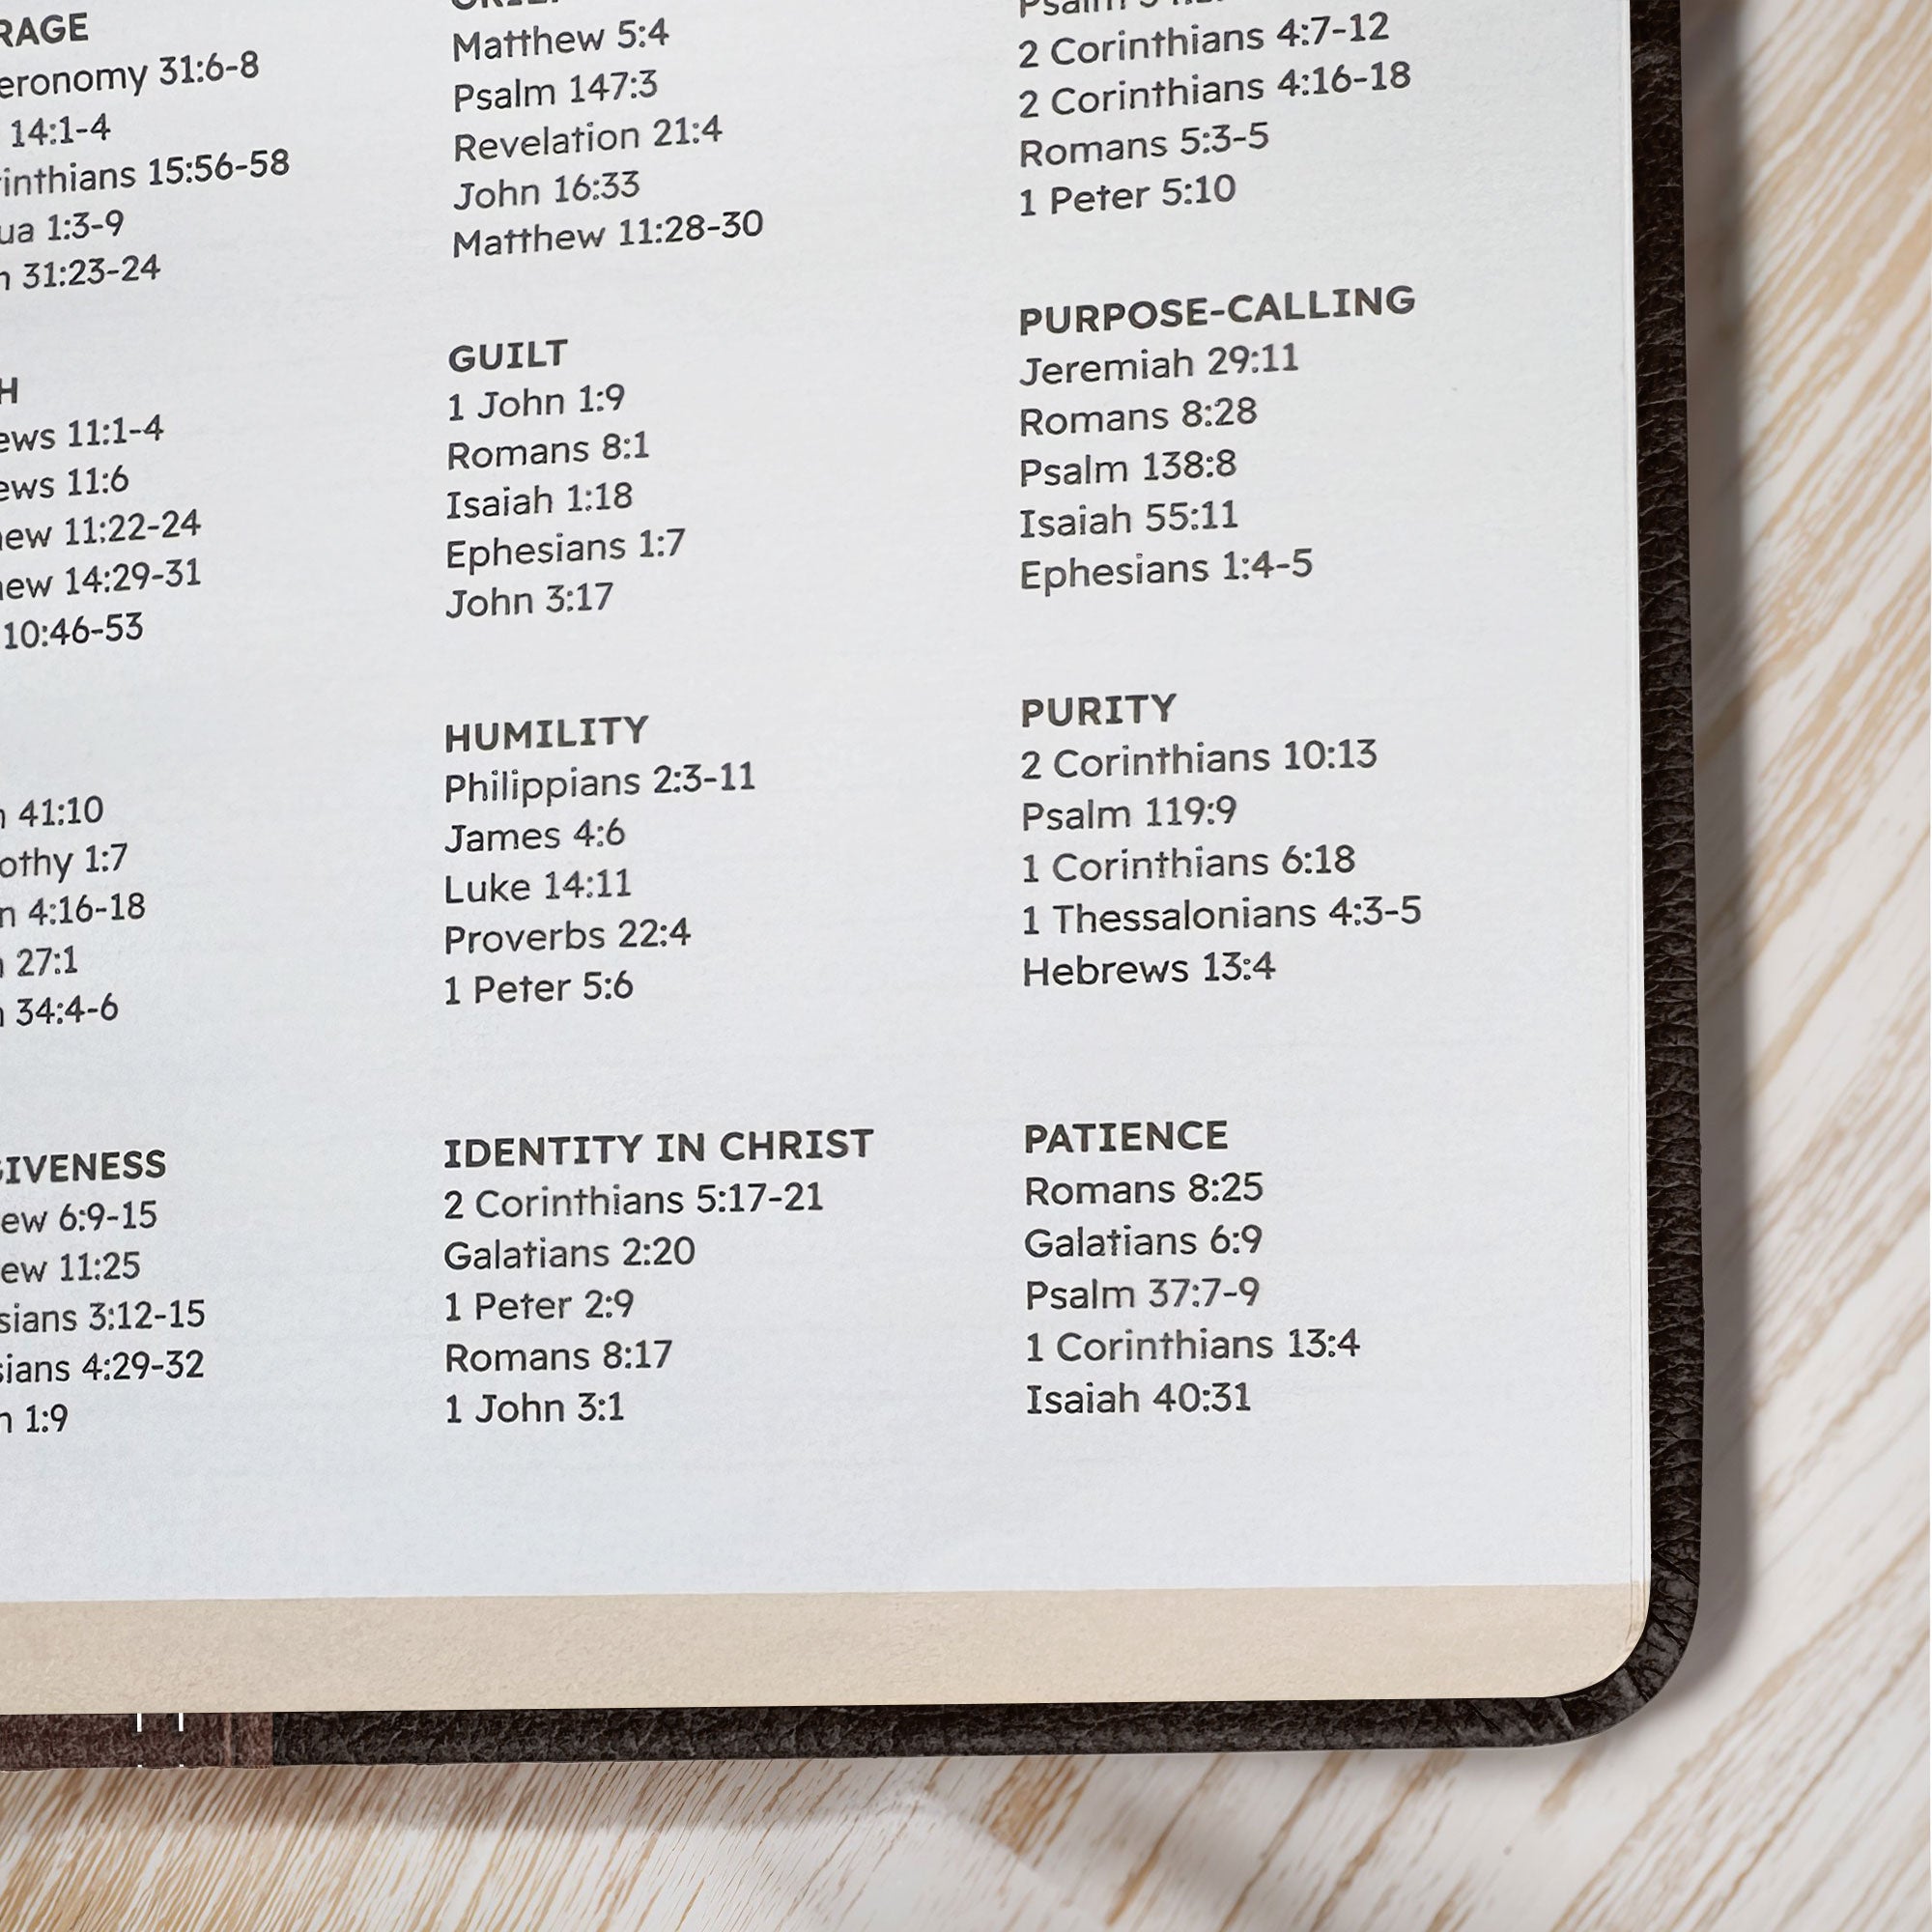 31:6-8
14:1-4
15:56-58
1:3-9
31:23-24
11:1-4
11:6
11:22-24
14:29-31
10:46-53
41:10
1:7
4:16-18
27:1
34:4-6
6:9-15
11:25
3:12-15
4:29-32
1:9
Matthew 5:4
Psalm 147:3
Revelation 21:4
John 16:33
Matthew 11:28-30
GUILT
1 John 1:9
Romans 8:1
Isaiah 1:18
Ephesians 1:7
John 3:17
HUMILITY
Philippians 2:3-11
James 4:6
Luke 14:11
Proverbs 22:4
1 Peter 5:6
IDENTITY IN CHRIST
2 Corinthians 5:17-21
Galatians 2:20
1 Peter 2:9
Romans 8:17
1 John 3:1
Psalm
2 Corinthians 4:7-12
2 Corinthians 4:16-18
Romans 5:3-5
1 Peter 5:10
PURPOSE-CALLING
Jeremiah 29:11
Romans 8:28
Psalm 138:8
Isaiah 55:11
Ephesians 1:4-5
PURITY
2 Corinthians 10:13
Psalm 119:9
1 Corinthians 6:18
1 Thessalonians 4:3-5
Hebrews 13:4
PATIENCE
Romans 8:25
Galatians 6:9
Psalm 37:7-9
1 Corinthians 13:4
Isaiah 40:31